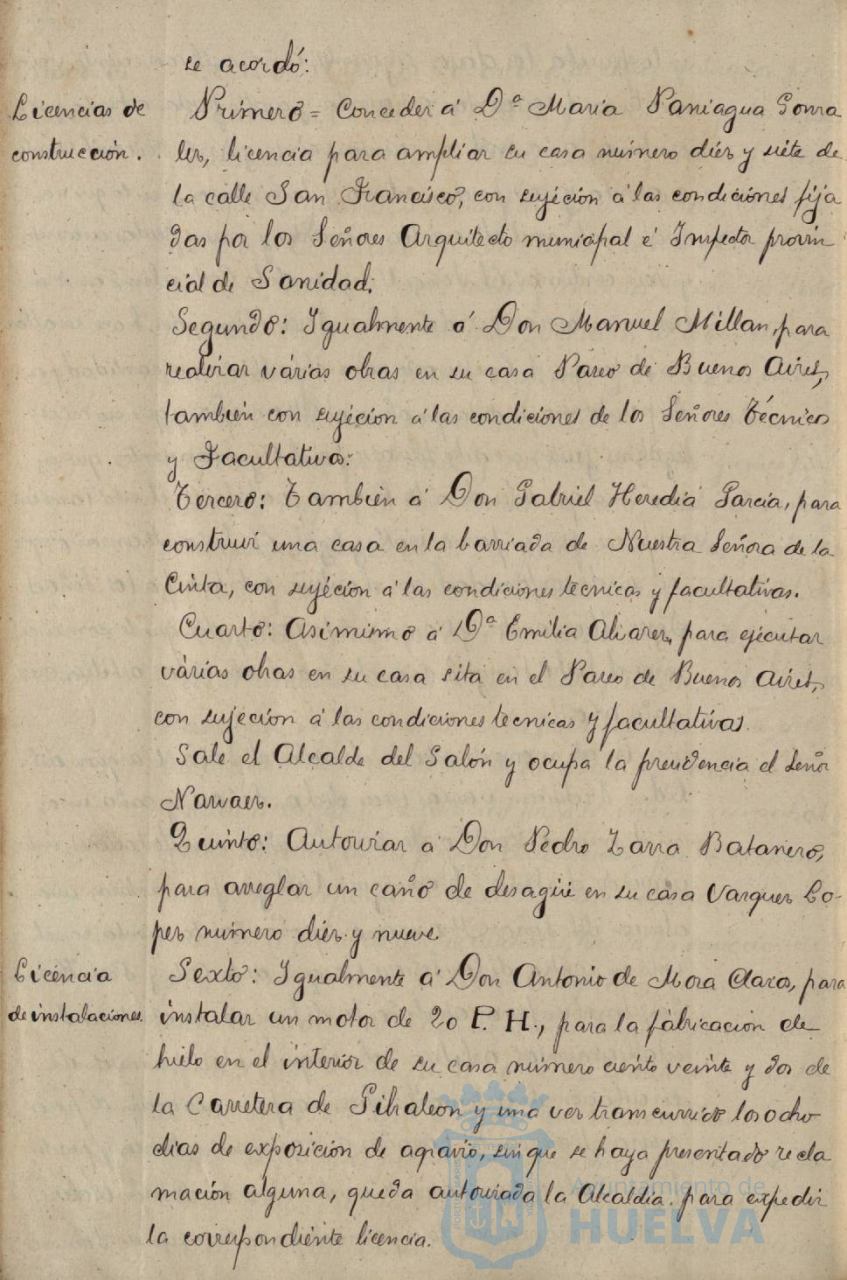 se acordó:
Licencias de
construcción.
Primero = Conceder á Dª Maria Paniagua Gonza
lez, licencia para ampliar su casa número diez y siete de
la calle San Francisco, con sujeción á las condiciones fija
das por los Señores Arquitecto municipal é Inspector provin
cial de Sanidad.
Segundo: Igualmente á Don Manuel Millan, para
realizar várias obras en su casa Paseo de Buenos Aires,
también con sujeción á las condiciones de los Señores Técnicos
y Facultativos:
Tercero: También á Don Gabriel Heredia García, para
construir una casa en la barriada de Nuestra Señora de la
Cinta, con sujéción á las condiciones tecnicas y facultativas.
Cuarto: Asimismo á Dª Emilia Alvarez, para ejecutar
várias obras en su casa sita en el Paseo de Buenos Aires,
con sujeción á las condiciones tecnicas y facultativas.
Sale el Alcalde del Salón y ocupa la presidencia el Señor
Narvaez.
Quinto: Autorizar á Don Pedro Zarra Batanero,
para arreglar un caño de desagüe en su casa Vazquez Lo-
pez número diez y nueve.
Licencia
de instalaciones.
Sexto: Igualmente á Don Antonio de Mora Claros, para
instalar un motor de 20 P. H., para la fabricación de
hielo en el interior de su casa número ciento veinte y dos de
la Carretera de Gibraleon y una vez transcurrido los ocho
dias de exposición de agravio, sin que se haya presentado recla
mación alguna, queda autorizada la Alcaldía para expedir
la correspondiente licencia.
Ayuntamiento de
HUELVA